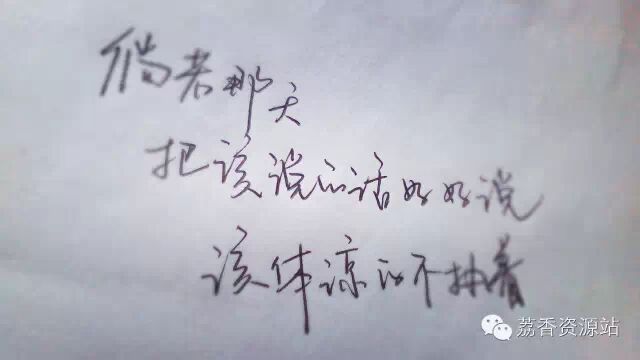 倘若那天
把该说的话好好说
该体谅的不执着
荔香资源站